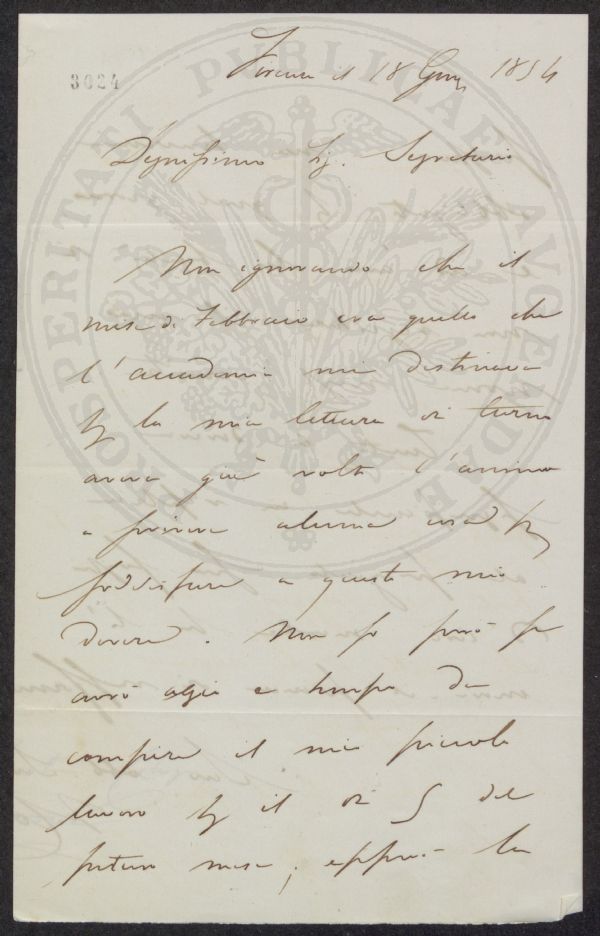 3024
Firenze il 18 Genn 1854
Degnissimo Sig. Segretario
Non ignorando che il
mese di Febbraio era quello che
l'accademia mi destinava
per la mia lettura di turno
aveva già volto l'animo
a scrivere alcuna cosa per
soddisfare a questo mio
dovere. Non so però se
avrò agio e tempo da
compire il mio piccolo
lavoro per il dì 5 del
futuro mese; epperò la
PROSPERITATI PUBLICAE AUGENDAE